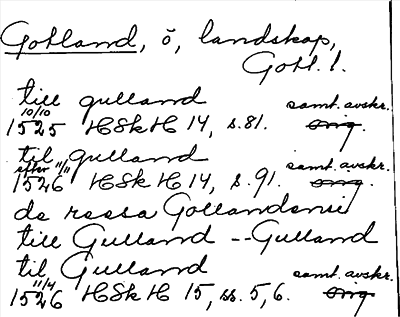 Gotland, ö, landskap,
Gotl. l.
till gulland
10/10 samt. avskr.
1525 HSkH 14, s. 81. orig.
til gulland
efter 11/11 samt. avskr.
1526 HSkH 14, s. 91. orig.
de ressa Gollandenn
till Gulland -- Gulland
til Gulland
11/4 samt. avskr.
1526 HSkH 15, ss. 5, 6. orig.